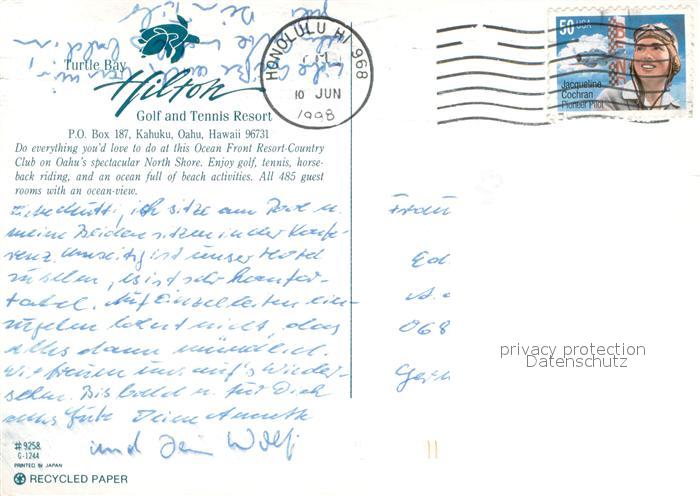 Turtle Bay
Hilton
Golf and Tennis Resort
P.O. Box 187, Kahuku, Oahu, Hawaii 96731
Do everything you'd love to do at this Ocean Front Resort-Country
Club on Oahu's spectacular North Shore. Enjoy golf, tennis, horse-
back riding, and an ocean full of beach activities. All 485 guest
rooms with an ocean-view.
HONOLULU HI 968
10 JUN
1998
50 USA
Jacqueline
Cochran
Pioneer Pilot
ich sitze am Pool u.
meine Beiden sitzen in der Konfe-
renz. Umseitig ist unser Hotel
zu sehen, es ist sehr komfor-
tabel. Auf Einzelheiten ein-
zugehen lohnt nicht, das
alles dann mündlich.
Wir freuen uns auf's Wieder-
sehen. Bis bald u. für Dich
alles Gute Deine Anneth
und Dein Wolf
Ed
068
Ger
privacy protection
Datenschutz
#9258
G-1244
PRINTED IN JAPAN
RECYCLED PAPER